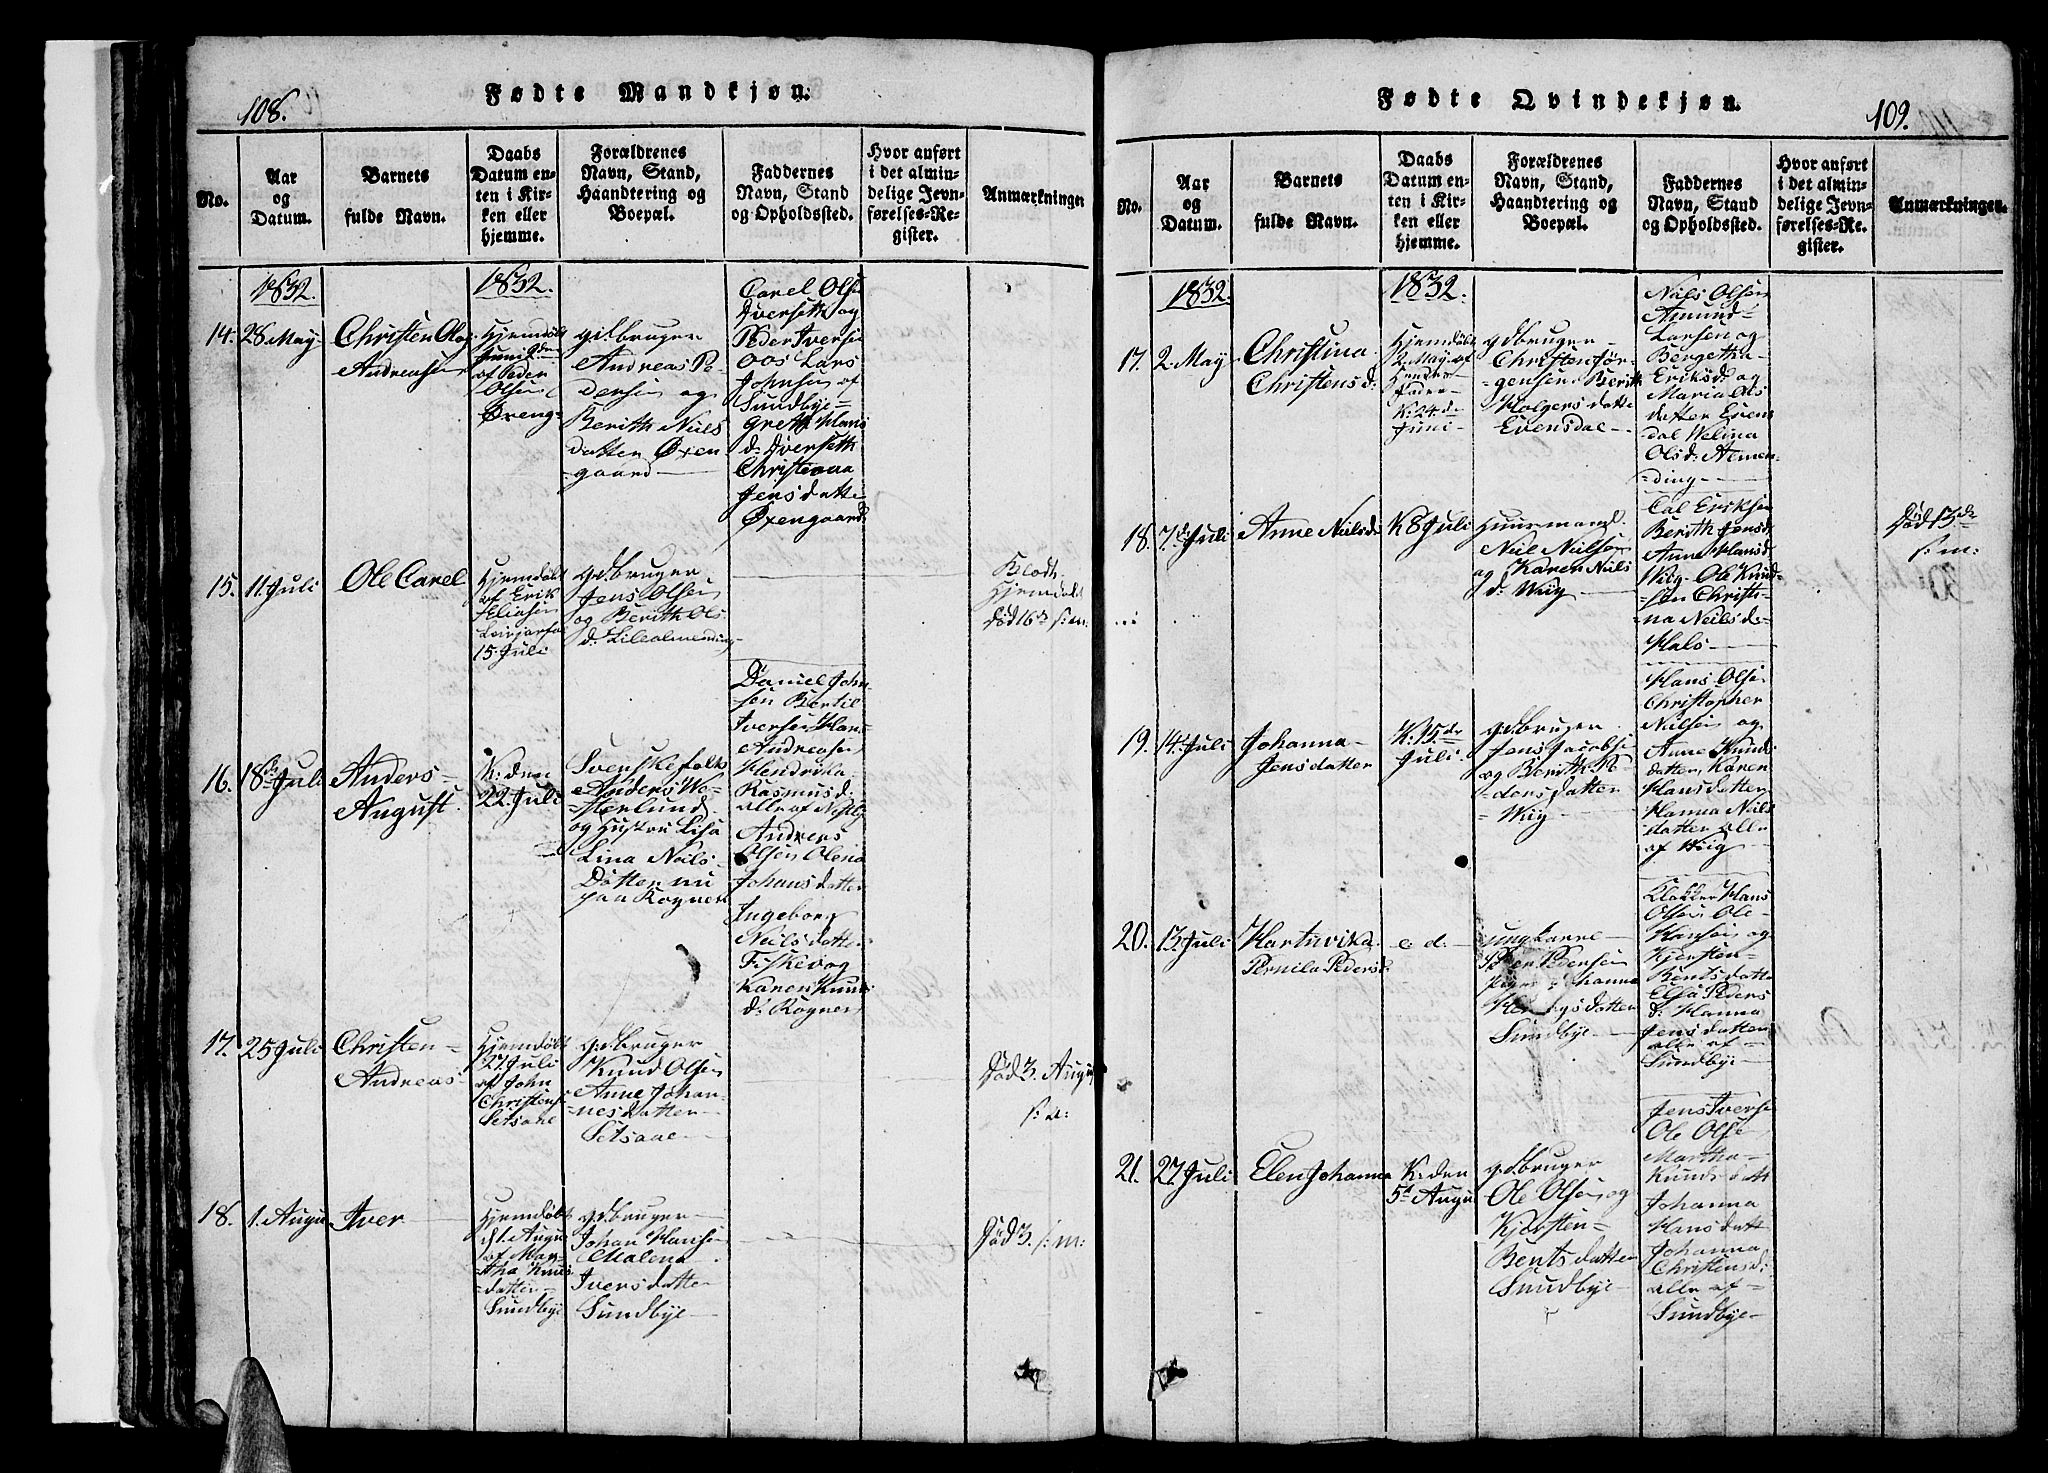 108.
Fødte Mandkjøn.
No.
Aar
og
Datum.
Barnets
fulde Navn.
Daabs
Datum en-
ten i Kir-
ken eller
hjemme.
Forældrenes
Navn, Stand,
Haandtering og
Boepæl.
Faddernes
Navn, Stand
og Opholdssted.
Hvor anført
i det almin-
delige Jevn-
førelses-Re-
gister.
Anmærkninger
1832.
1832.
14.
28 May
Christen Olaj
Andreasen
Hjemdøbt
Juni
af Peder
Olsen
Øxeng-
gdbruger
Andreas Pe-
dersen og
Berith Niels
datter Øxen
=gaard
Carel Olse
Iverseth og
Peder Iverse
oos Lars
Johnsen af
Sundbye=
greth Hans
d: Iverseth
Christiana
Jensdatte
Øxengaard
15.
11 Juli
Ole Carel
Hjemdøbt
af Erik
Eliasen
15 Juli
gdbruger
Jens Olsen
og Berith Ols
d: Lilealmening
Hjemdøbt
død 16d s: m:
16.
18de Juli
Anders
August
K: den
22 Juli
Svenskefolk
Anders We-
=sterlund
og Hustru Lisa
Lina Neils
Datter nu
paa Rognen
Daniel John
sen Bertil
Iversen Hans
Andreasen
Hendrika
Rasmusd:
alle af
Anders
Olsen Olena
Johansdatter
Ingeborg
Neilsdatter
Fiskevog
Karen Knuds
d: Rognen
17.
25 Juli
Christen
Andreas
Hjemdøbt
27 Juli
af John
Christens
Setsaae
gdbruger
Knud Olsen
Anne Johan-
=nesdatter
Setsaae
Død 3. Augu
s: a:
18.
1. Augu
Iver
Hjemdøbt
d 1. Augu
af Mar-
tha Knuds
=datter
Sundbye
gdbruger
Johan Hanse
Malena
Iversdatter
Sundbye
Død 3. s: m:
Fødte Qvindekjøn.
109.
No.
Aar
og
Datum.
Barnets
fulde Navn.
Daabs
Datum en-
ten i Kir-
ken eller
hjemme.
Forældrenes
Navn, Stand,
Haandtering og
Boepæl.
Faddernes
Navn, Stand
og Opholdssted.
Hvor anført
i det almin-
delige Jevn-
førelses-Re-
gister.
Anmærkninger.
1832.
1832.
17.
2. May
Christina
Christensd:
Hjemdøbt
2 May af
Fader
K: 24de
Juni
gdbruger
Christen Jør-
=gensen Berith
Holgersdatte
Evensdae
Niels Olsen
Amund
Larsen og
Bergetha
Eriksd: og
Maria Ols
datter Evens
dal Welina
Olsd: Aemen-
=ding
18.
7de Juli
Anne Nielsd:
K 8 Juli
Huusmand
Niel Nielsen
og Karen Niels
d: Wiig
Cal Eriksen
Berith Jensd:
Anne Hansd:
Wiig Ole Knud-
=sen Christi-
na Neilsd:
Hals
Død 13de
s: m:
19.
14. Juli
Johanna
Jensdatter
K: 15de
Juli
gdbruger
Jens Jacobse
og Berith Pe-
dersdatter
Wiig
Hans Olse
Christopher
Nielsen og
Anne Knuds
datter, Karen
Hansdatter
Hanna Niels
datter alle
af Wiig
20.
13 Juli
Hartuvika
Pernila Pedersd:
e d.
ungkarne
Peder Pedersen
Pige Johanna
Sundbye
Klokker Hans
Olsen Ole
Hansen og
Kjersten
Bentsdatte
Elsa Peders
d: Hanna
Jensdatter
alle af
Sundbye
21.
27 Juli
Elen Johanna
K: den
5t Augu
gdbruger
Ole Olsen og
Kjersten
Bentsdatter
Sundbye
Jens Iverse
Ole Olse
Martha
Knudsdatt
Johanna
Hansdatt
Johanna
Christensd:
alle af
Sundbye